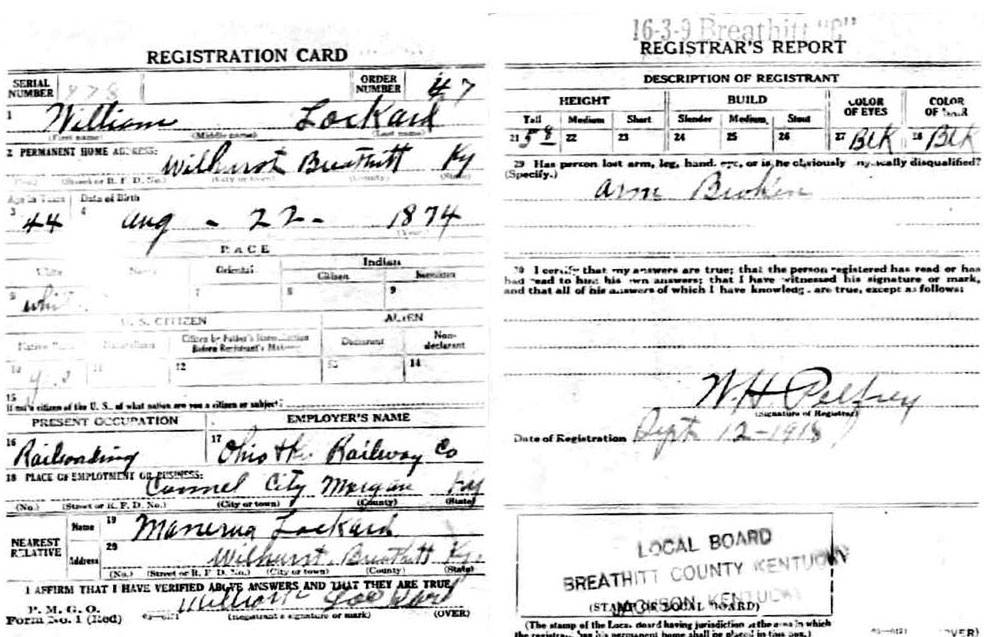 REGISTRATION CARD
SERIAL NUMBER 978 ORDER NUMBER 47
1 William Lockard
(First name) (Middle name) (Last name)
2 PERMANENT HOME ADDRESS: Wilhurst Breathitt Ky
(No.) (Street or R. F. D. No.) (City or town) (County) (State)
Age in Years Date of Birth
3 44 4 Aug - 22 - 1874
(Year)
RACE
White Negro Oriental Indian
Citizen Noncitizen
5 whi 7 8 9
U. S. CITIZEN ALIEN
Native Born Naturalized Citizen by Father's Naturalization Before Registrant's Majority Declarant Non-declarant
10 yes 11 12 13 14
15
If not a citizen of the U. S., of what nation are you a citizen or subject?
PRESENT OCCUPATION EMPLOYER'S NAME
16 Railroading 17 Ohio & Railway Co
18 PLACE OF EMPLOYMENT OR BUSINESS:
Cannel City Morgan Ky
(No.) (Street or R. F. D. No.) (City or town) (County) (State)
NEAREST RELATIVE
Name 19 Manerva Lockard
Address 20 Wilhurst Breathitt Ky.
(No.) (Street or R. F. D. No.) (City or town) (County) (State)
I AFFIRM THAT I HAVE VERIFIED ABOVE ANSWERS AND THAT THEY ARE TRUE
P. M. G. O.
Form No. 1 (Red) William Lockard
(Registrant's signature or mark) (OVER)
16-3-9 Breathitt "C"
REGISTRAR'S REPORT
DESCRIPTION OF REGISTRANT
HEIGHT BUILD COLOR OF EYES COLOR OF HAIR
Tall Medium Short Slender Medium Stout
21 5 8 22 23 24 25 26 27 Blk 28 Blk
29 Has person lost arm, leg, hand, eye, or is he obviously physically disqualified?
(Specify.) arm Broken
30 I certify that my answers are true; that the person registered has read or has
had read to him his own answers; that I have witnessed his signature or mark,
and that all of his answers of which I have knowledge are true, except as follows:
W. H. Pelfrey
(Signature of Registrar)
Date of Registration Sept 12-1918
LOCAL BOARD
BREATHITT COUNTY KENTUCKY
JACKSON, KENTUCKY
(STAMP OF LOCAL BOARD)
(The stamp of the Local Board having jurisdiction of the area in which
the registrant has his permanent home shall be placed in this box.)
(OVER)